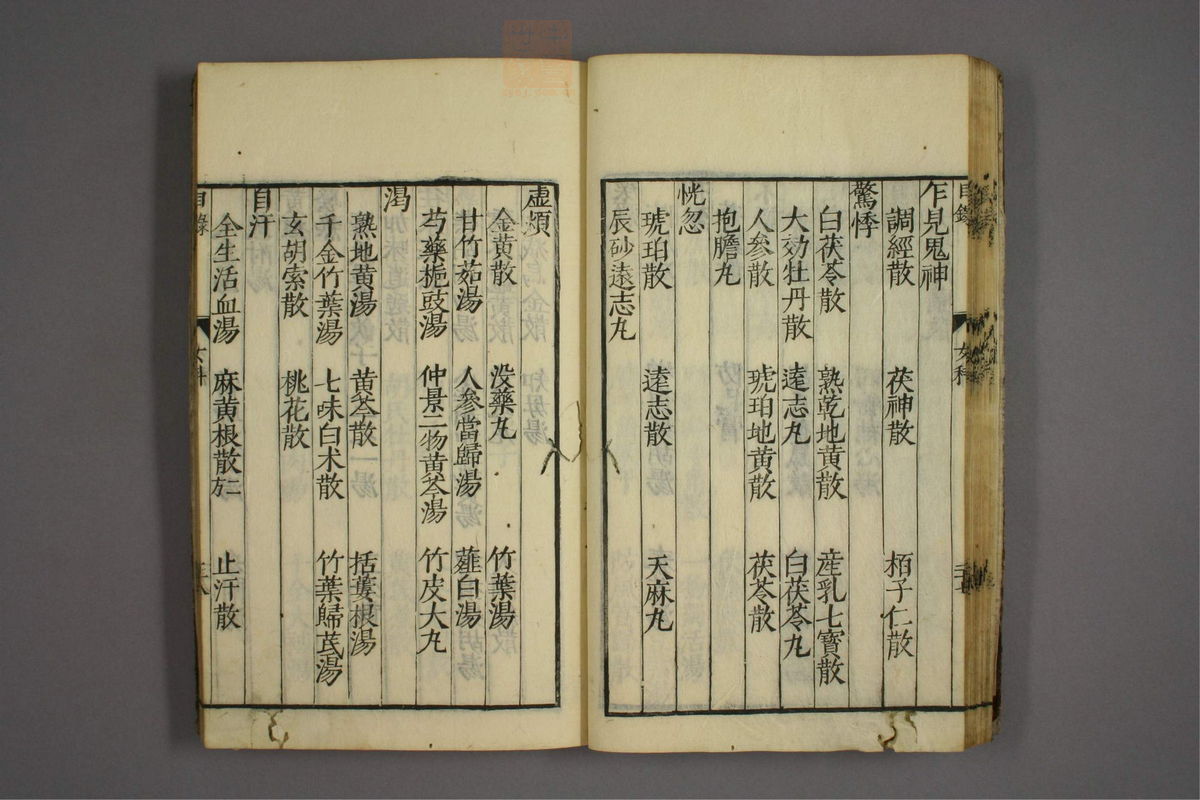 乍見鬼神
調經散 茯神散 栢子仁散
驚悸
白茯苓散 熟乾地黄散 産乳七寳散
大効牡丹散 遠志丸 白茯苓丸
人參散 琥珀地黄散 茯苓散
抱膽丸
恍忽
琥珀散 遠志散 天麻丸
辰砂遠志丸
虚煩
金黄散 没藥丸 竹葉湯
甘竹茹湯 人參當歸湯 薤白湯
芍藥梔豉湯 仲景二物黄芩湯 竹皮大丸
渴
熟地黄湯 黄芩散 括蔞根湯
千金竹葉湯 七味白术散 竹葉歸芪湯
玄胡索散 桃花散
自汗
全生活血湯 麻黄根散二方 止汗散
目錄 女科